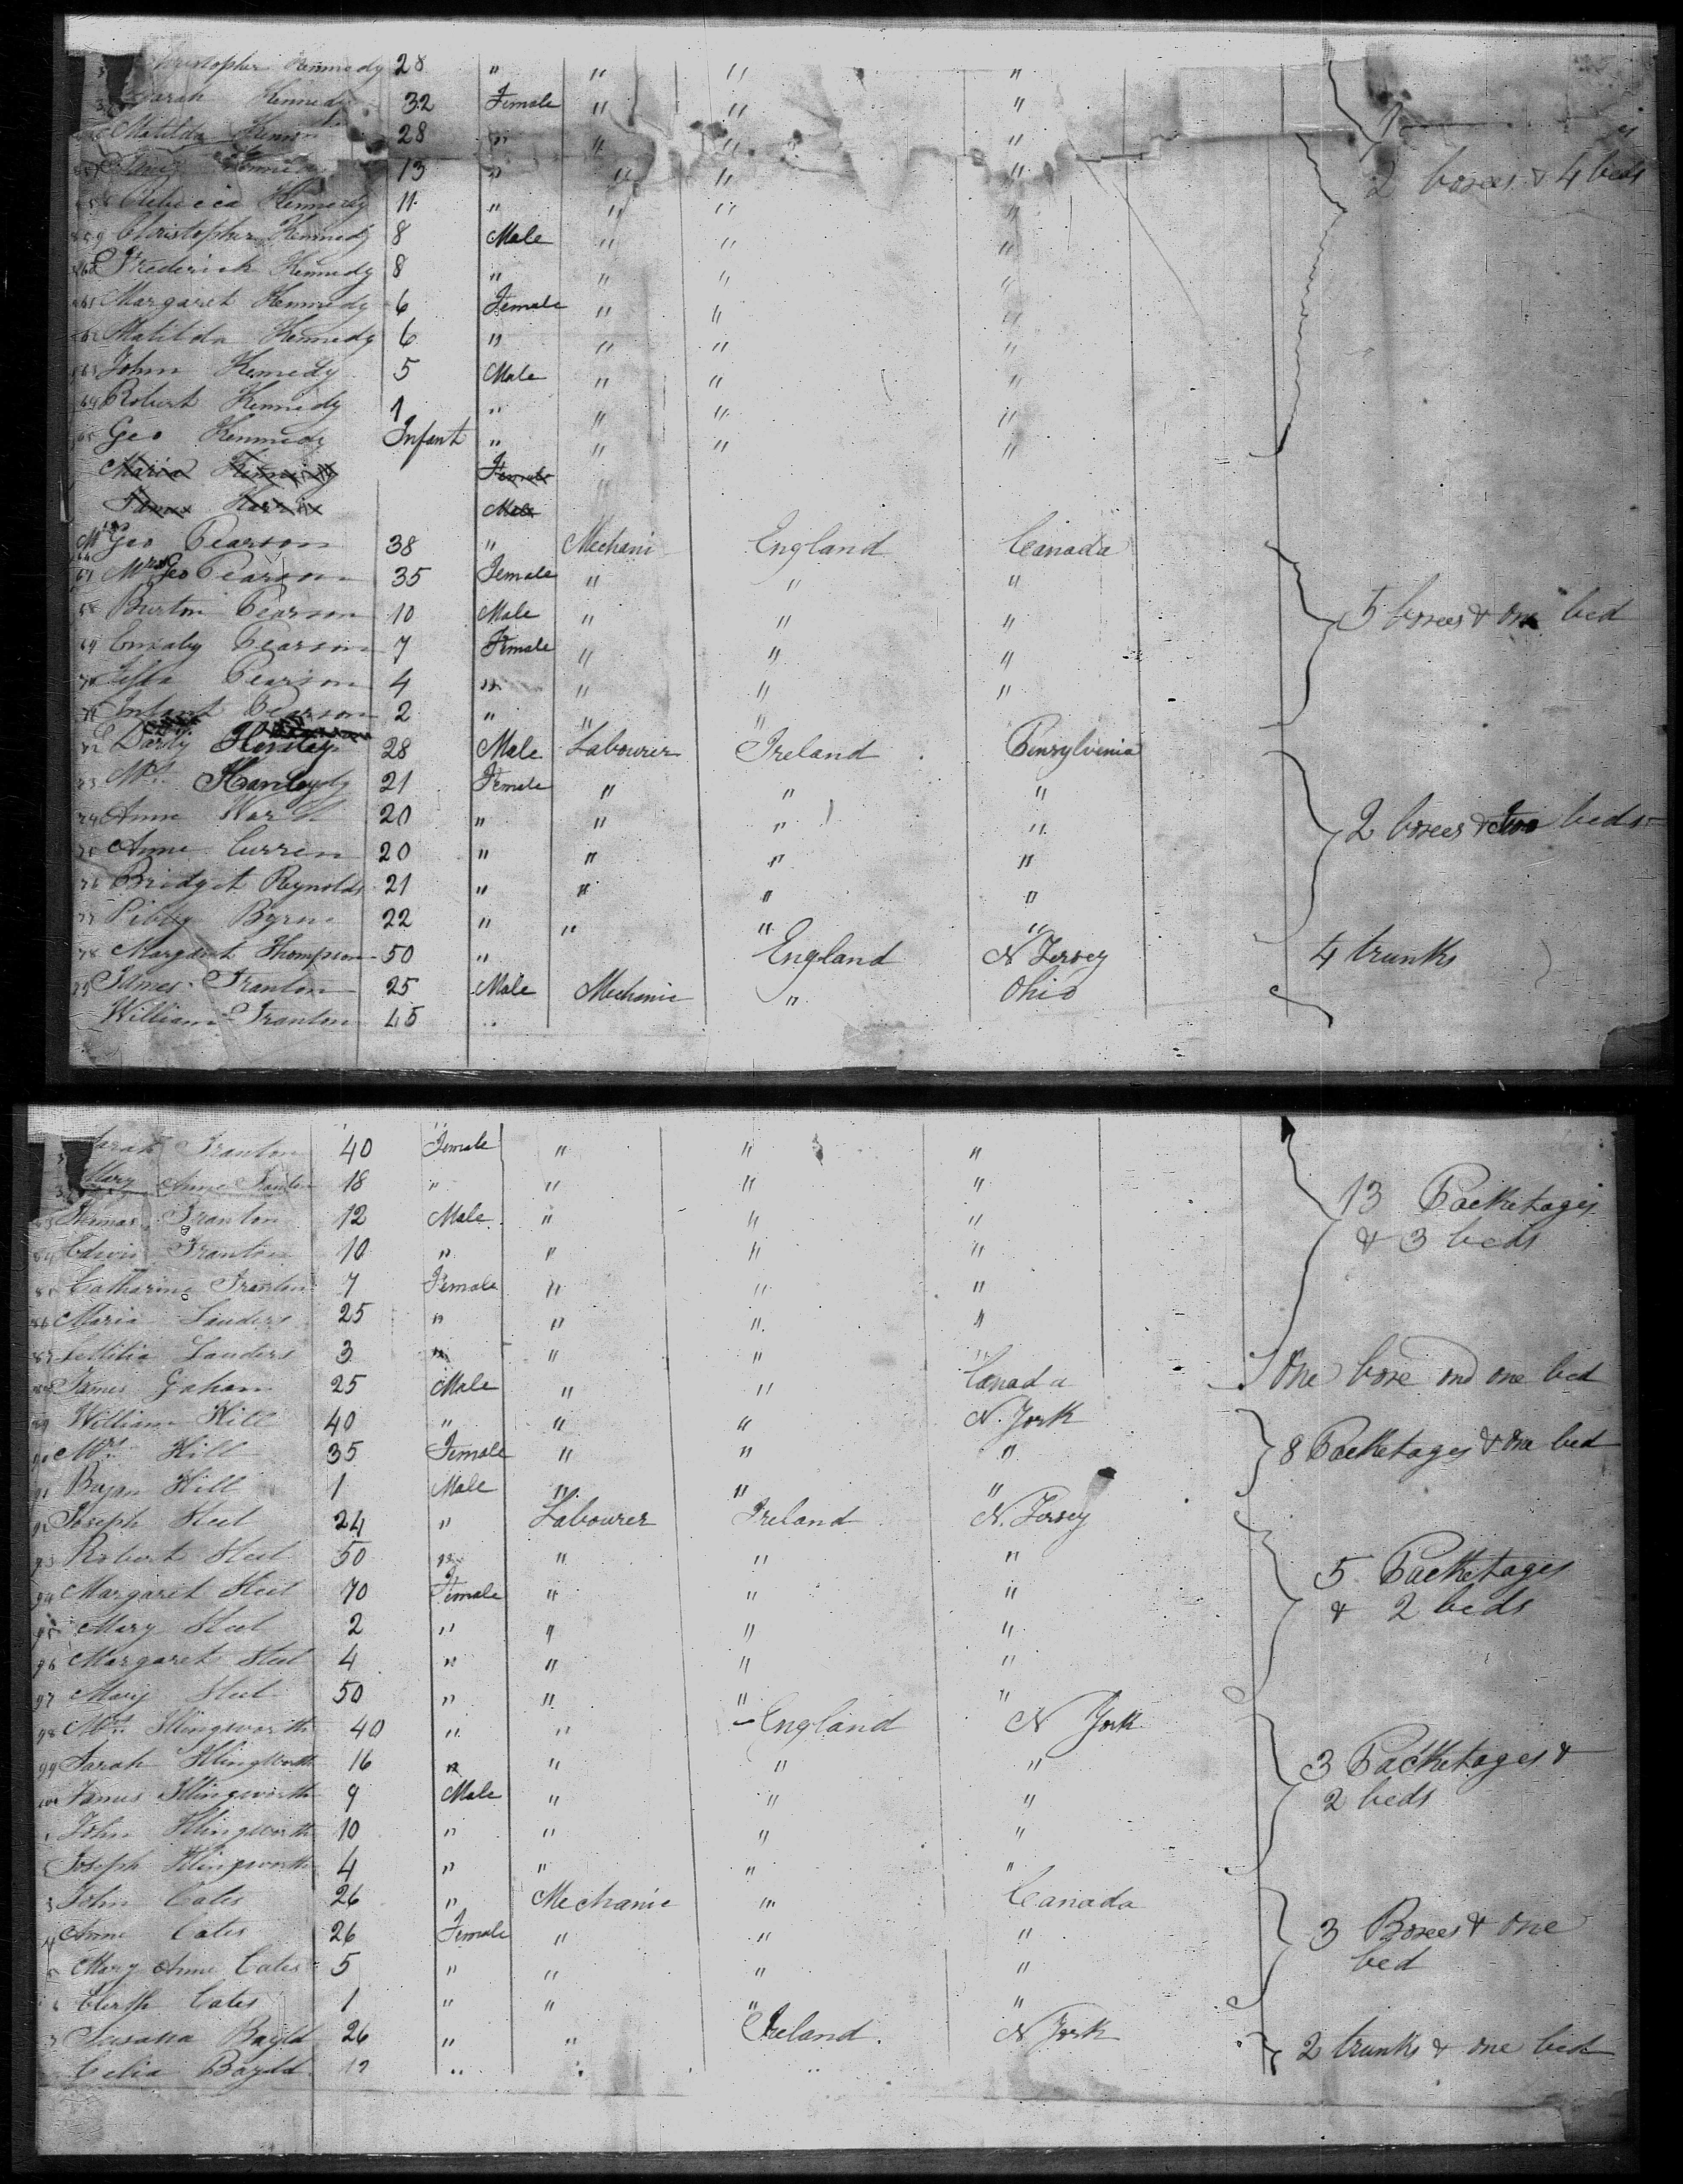 Christopher Kennedy 28 " " " "
Sarah Kennedy 32 Female " " "
Matilda Kenn 28 " " " "
13 " " " " 2 boxes & 4 beds
Rebecca Kennedy 11 " " " "
59 Christopher Kennedy 8 Male " " "
60 Frederick Kennedy 8 " " " "
61 Margaret Kennedy 6 Female " " "
62 Matilda Kennedy 6 " " " "
63 John Kennedy 5 Male " " "
64 Robert Kennedy 1 " " " "
65 Geo Kennedy Infant " " " "
Maria Kennedy Female
James Harris Male
Mr Geo Pearson 38 " Mechani England Canada
67 Mrs Geo Pearson 35 Female " " "
68 Burton Pearson 10 Male " " " 5 boxes & one bed
69 Pearson 7 Female " " "
70 Pearson 4 " " " "
71 Infant Pearson 2 " " " "
72 Darby Henley 28 Male Labourer Ireland Pensylvinia
73 Mrs. Hanley 21 Female " " "
74 Anne Ward 20 " " " " 2 boxes & two beds
75 Anne Curren 20 " " " "
76 Bridget Reynolds 21 " " " "
77 Byrne 22 " " " "
78 Margaret Thompson 50 " England N Jersey 4 trunks
79 James Tranton 25 Male Mechanic " Ohio
William Tranton 45 "
Sarah Tranton 40 Female " " "
Mary Anne Tranton 18 " " " " 13 Packetages
83 Thomas Tranton 12 Male " " " & 3 beds
84 Edwin Tranton 10 " " " "
85 Catharine Tranton 7 Female " " "
86 Maria Landers 25 " " " "
87 Lettitia Landers 3 " " " "
88 James Gahan 25 Male " " Canada One boxe and one bed
89 William Hill 40 " " " N. York
90 Mrs. Hill 35 Female " " " 8 Packetages & one bed
91 Bryan Hill 1 Male " " "
92 Joseph Steel 24 " Labourer Ireland N. Jersey
93 Robert Steel 50 " " " " 5 Packetages
94 Margaret Steel 70 Female " " " & 2 beds
95 Mary Steel 2 " " " "
96 Margaret Steel 4 " " " "
97 Mary Steel 50 " " " "
98 Mrs. Illingworth 40 " " England N York
99 Sarah Illingworth 16 " " " " 3 Packetages &
100 James Illingworth 9 Male " " " 2 beds
1 John Illingworth 10 " " " "
2 Joseph Illingworth 4 " " " "
3 John Cates 26 " Mechanic " Canada
4 Anne Cates 26 Female " " " 3 Boxes & one
5 Mary Anne Cates 5 " " " " bed
6 Cates 1 " " " "
7 Susana Bayld 26 " " Ireland N York 2 trunks & one bed
Celia Bayld 12 " " "